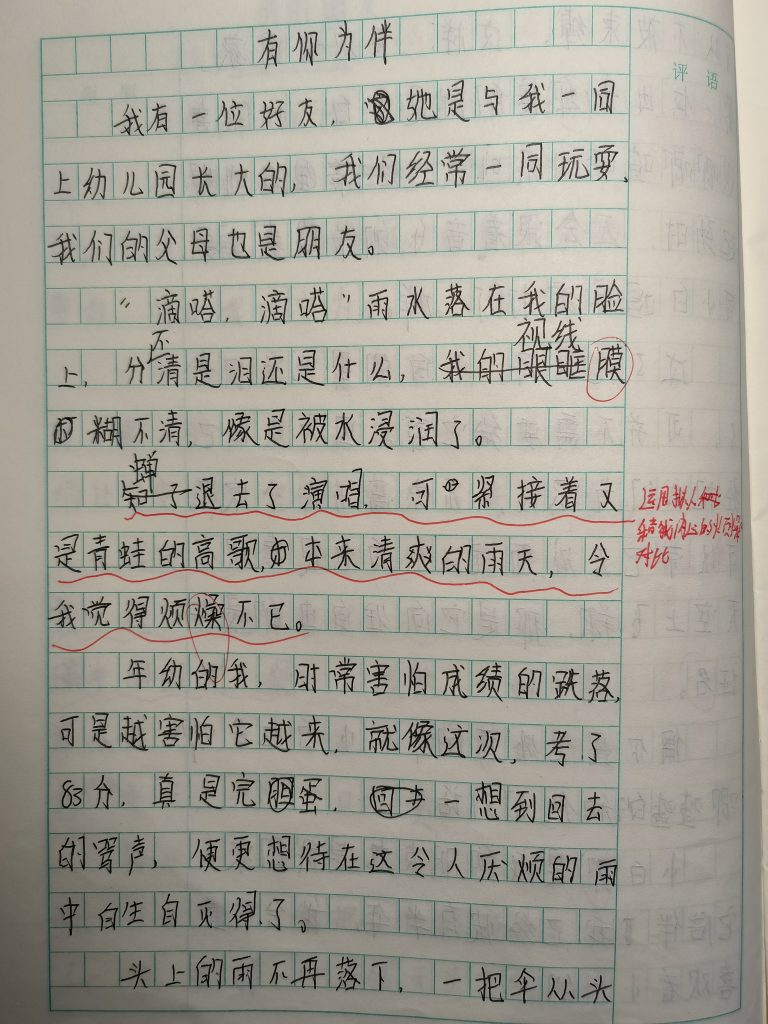 有你为伴
评语
我有一位好友，她是与我一同
上幼儿园长大的，我们经常一同玩耍，
我们的父母也是朋友。
“滴嗒，滴嗒”雨水落在我的脸
上，分不清是泪还是什么，视线膜
糊不清，像是被水浸润了。
蝉退去了演唱，可紧接着又
是青蛙的高歌，本来清爽的雨天，令
我觉得烦燥不已。
运用拟人
对比
年幼的我，时常害怕成绩的跌落，
可是越害怕它越来，就像这次，考了
83分，真是完胆蛋，一想到回去
的骂声，便更想待在这令人厌烦的雨
中自生自灭得了。
头上的雨不再落下，一把伞从头